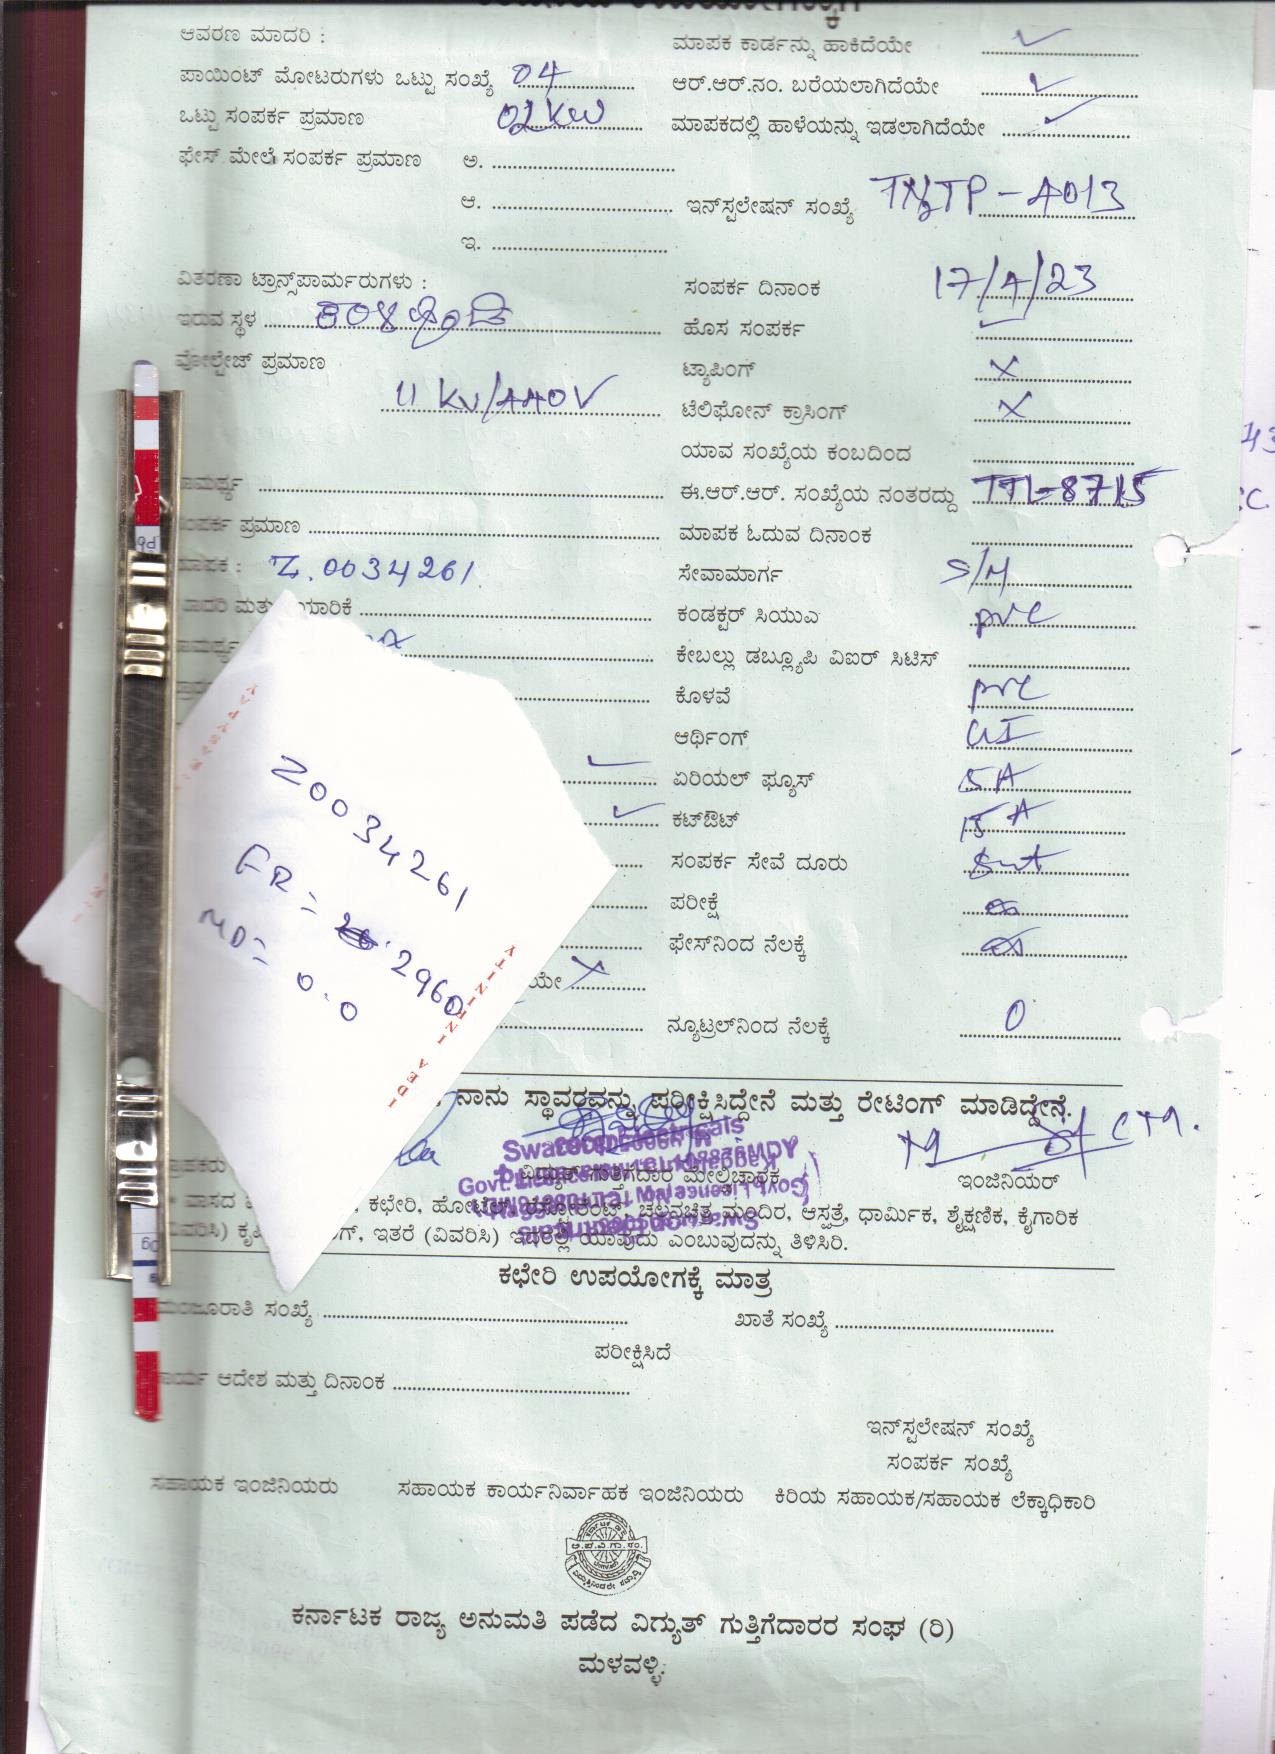 ಆವರಣ ಮಾದರಿ :
ಮಾಪಕ ಕಾರ್ಡನ್ನು ಹಾಕಿದೆಯೇ ✓
ಪಾಯಿಂಟ್ ಮೋಟರುಗಳು ಒಟ್ಟು ಸಂಖ್ಯೆ 04
ಆರ್.ಆರ್.ನಂ. ಬರೆಯಲಾಗಿದೆಯೇ ✓
ಒಟ್ಟು ಸಂಪರ್ಕ ಪ್ರಮಾಣ 02 KW
ಮಾಪಕದಲ್ಲಿ ಹಾಳೆಯನ್ನು ಇಡಲಾಗಿದೆಯೇ ✓
ಫೇಸ್ ಮೇಲೆ ಸಂಪರ್ಕ ಪ್ರಮಾಣ ಅ.
ಆ.
ಇನ್‌ಸ್ಟಲೇಷನ್ ಸಂಖ್ಯೆ TNTP-4013
ಇ.
ವಿತರಣಾ ಟ್ರಾನ್ಸ್‌ಪಾರ್ಮರುಗಳು :
ಸಂಪರ್ಕ ದಿನಾಂಕ 17/4/23
ಇರುವ ಸ್ಥಳ
ಹೊಸ ಸಂಪರ್ಕ ✓
ವೋಲ್ಟೇಜ್ ಪ್ರಮಾಣ
11 KV/440V
ಟ್ಯಾಪಿಂಗ್ X
ಟೆಲಿಫೋನ್ ಕ್ರಾಸಿಂಗ್ X
ಯಾವ ಸಂಖ್ಯೆಯ ಕಂಬದಿಂದ
ಈ.ಆರ್.ಆರ್. ಸಂಖ್ಯೆಯ ನಂತರದ್ದು TTL-8715
ಸಂಪರ್ಕ ಪ್ರಮಾಣ
ಮಾಪಕ ಓದುವ ದಿನಾಂಕ
ಮಾಪಕ : Z.0034261
ಸೇವಾಮಾರ್ಗ S/M
ಕಂಡಕ್ಟರ್ ಸಿಯುಎ pvc
ಕೇಬಲ್ಲು ಡಬ್ಲ್ಯೂಪಿ ವಿಐಆರ್ ಸಿಟಿಸ್
ಕೊಳವೆ pvc
ಆರ್ಥಿಂಗ್ GI
ಏರಿಯಲ್ ಫ್ಯೂಸ್ 5A
ಕಟ್‌ಔಟ್ 15 A
ಸಂಪರ್ಕ ಸೇವೆ ದೂರು
ಪರೀಕ್ಷೆ ∞
ಫೇಸ್‌ನಿಂದ ನೆಲಕ್ಕೆ ∞
ಯೇ X
ನ್ಯೂಟ್ರಲ್‌ನಿಂದ ನೆಲಕ್ಕೆ 0
Z0034261
FR = 2960
MD = 0.0
YTINIFNI AEDI
ನಾನು ಸ್ಥಾವರವನ್ನು ಪರೀಕ್ಷಿಸಿದ್ದೇನೆ ಮತ್ತು ರೇಟಿಂಗ್ ಮಾಡಿದ್ದೇನೆ.
ವಿದ್ಯುತ್ ಗುತ್ತಿಗೆದಾರ ಮೇಲ್ವಿಚಾರಕ
ಇಂಜಿನಿಯರ್
ಕಛೇರಿ, ಹೋಟೆಲ್, ರೆಸ್ಟೋರೆಂಟ್, ಚಲನಚಿತ್ರ ಮಂದಿರ, ಆಸ್ಪತ್ರೆ, ಧಾರ್ಮಿಕ, ಶೈಕ್ಷಣಿಕ, ಕೈಗಾರಿಕ
ಇತರೆ (ವಿವರಿಸಿ) ಇದರಲ್ಲಿ ಯಾವುದು ಎಂಬುವುದನ್ನು ತಿಳಿಸಿರಿ.
ಕಛೇರಿ ಉಪಯೋಗಕ್ಕೆ ಮಾತ್ರ
ಮಂಜೂರಾತಿ ಸಂಖ್ಯೆ
ಖಾತೆ ಸಂಖ್ಯೆ
ಪರೀಕ್ಷಿಸಿದೆ
ಕಾರ್ಯ ಆದೇಶ ಮತ್ತು ದಿನಾಂಕ
ಇನ್‌ಸ್ಟಲೇಷನ್ ಸಂಖ್ಯೆ
ಸಂಪರ್ಕ ಸಂಖ್ಯೆ
ಸಹಾಯಕ ಇಂಜಿನಿಯರು ಸಹಾಯಕ ಕಾರ್ಯನಿರ್ವಾಹಕ ಇಂಜಿನಿಯರು ಕಿರಿಯ ಸಹಾಯಕ/ಸಹಾಯಕ ಲೆಕ್ಕಾಧಿಕಾರಿ
ಕರ್ನಾಟಕ ರಾಜ್ಯ ಅನುಮತಿ ಪಡೆದ ವಿದ್ಯುತ್ ಗುತ್ತಿಗೆದಾರರ ಸಂಘ (ರಿ)
ಮಳವಳ್ಳಿ.